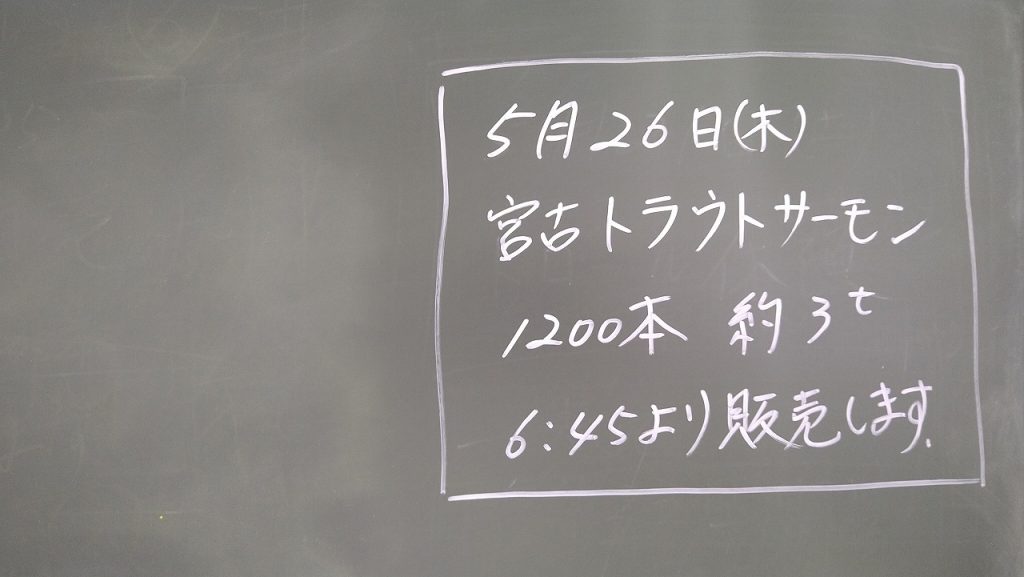 5月26日(木)
宮古トラウトサーモン
1200本 約3t
6:45より販売します.